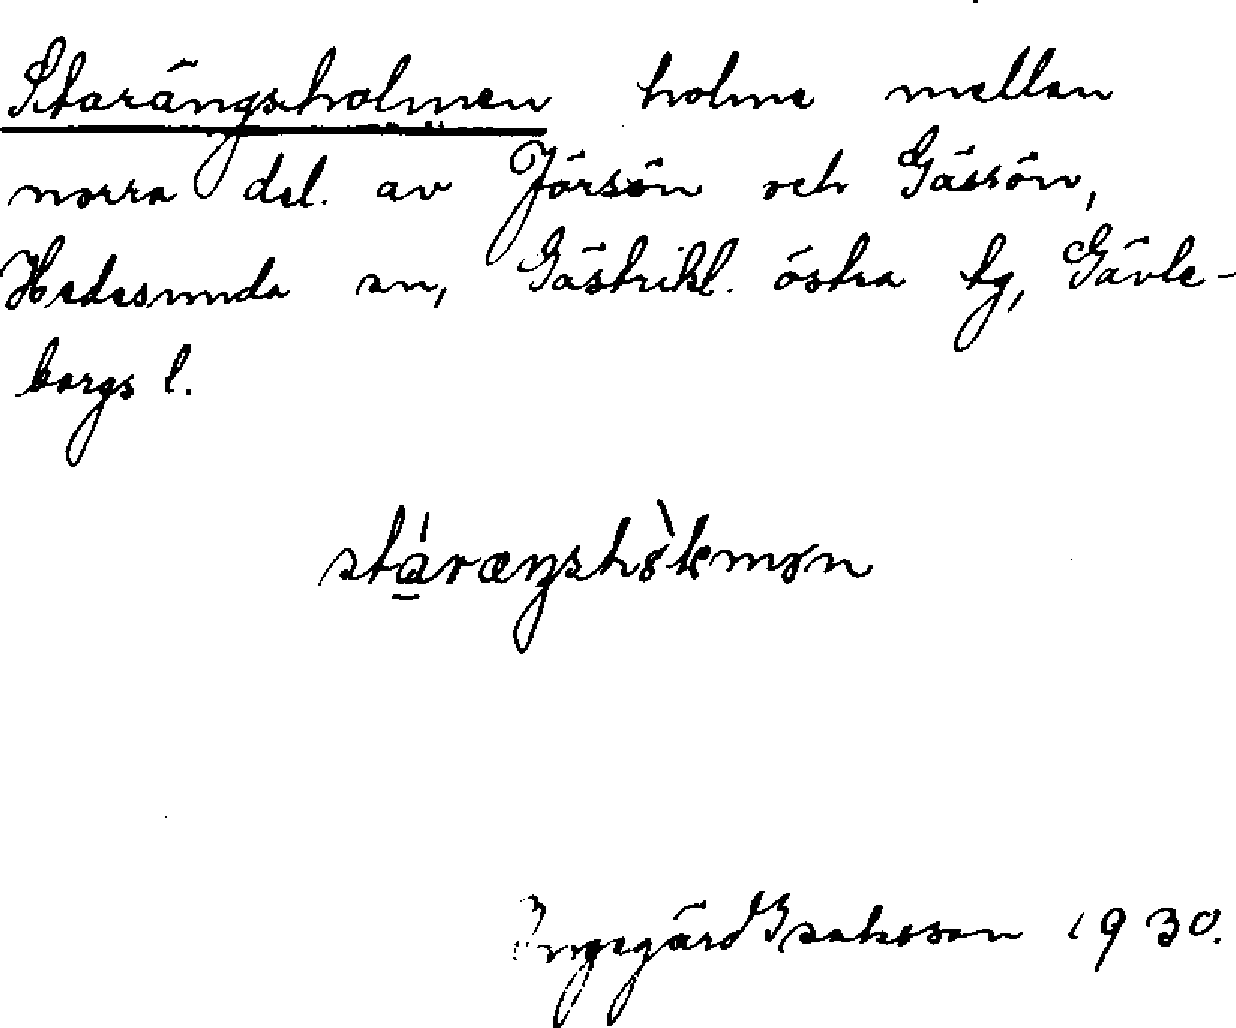 Starängsholmen holme mellan
norra del. av Jörsön och Gässön,
Hedesunda sn, Gästrikl. östra tg, Gävle-
borgs l.
Ingegärd Isaksson 1930.